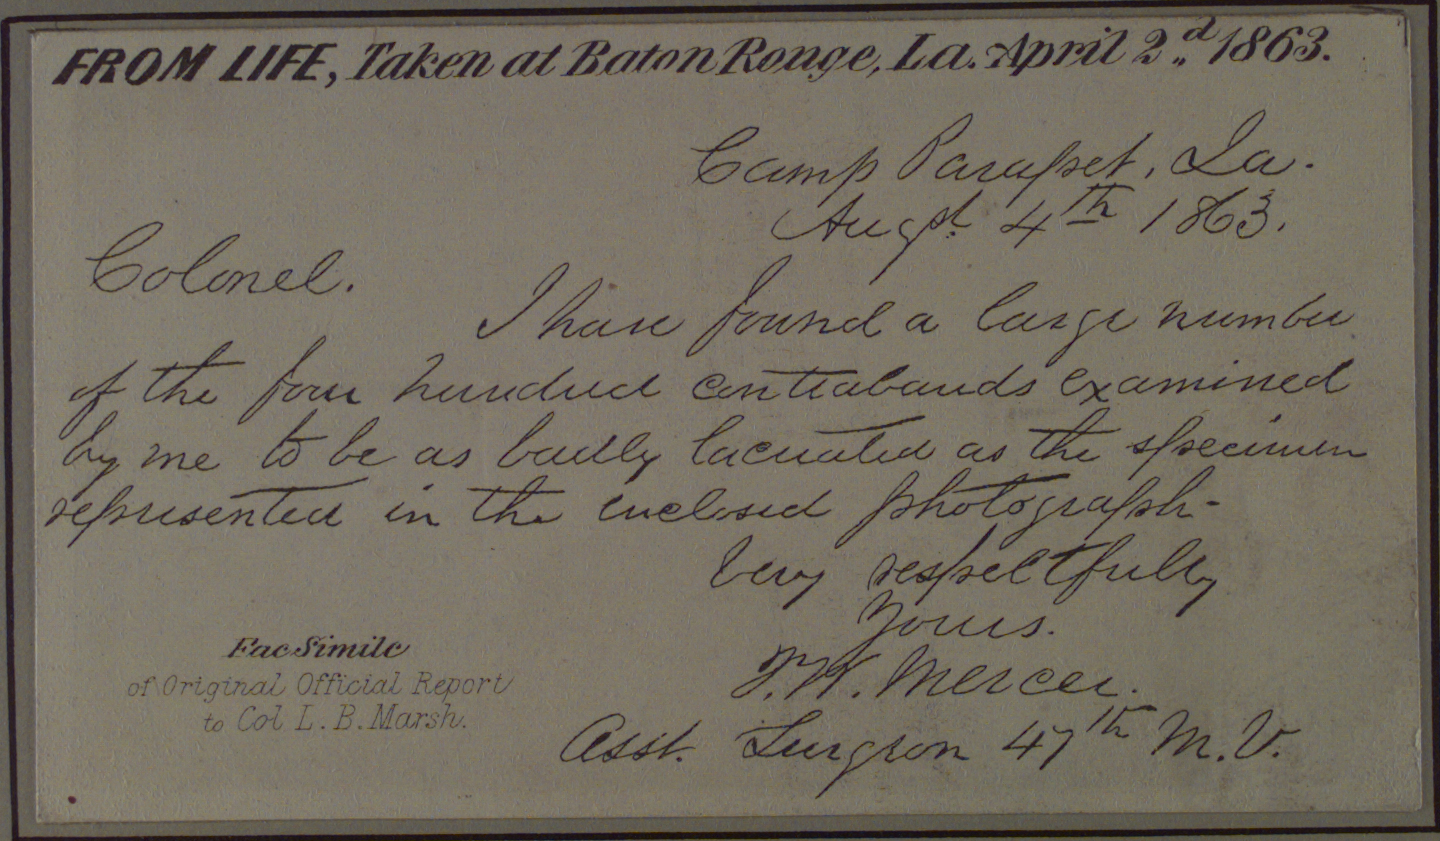 FROM LIFE, Taken at Baton Rouge, La. April 2.d 1863.
Camp Parapet, La.
Augst. 4th 1863.
Colonel.
I have found a large number
of the four hundred contrabands examined
by me to be as badly lacerated as the specimen
represented in the enclosed photograph-
Very respectfully
Yours.
J. W. Mercer.
Asst. Surgeon 47th M.V.
FacSimile
of Original Official Report
to Col L. B. Marsh.